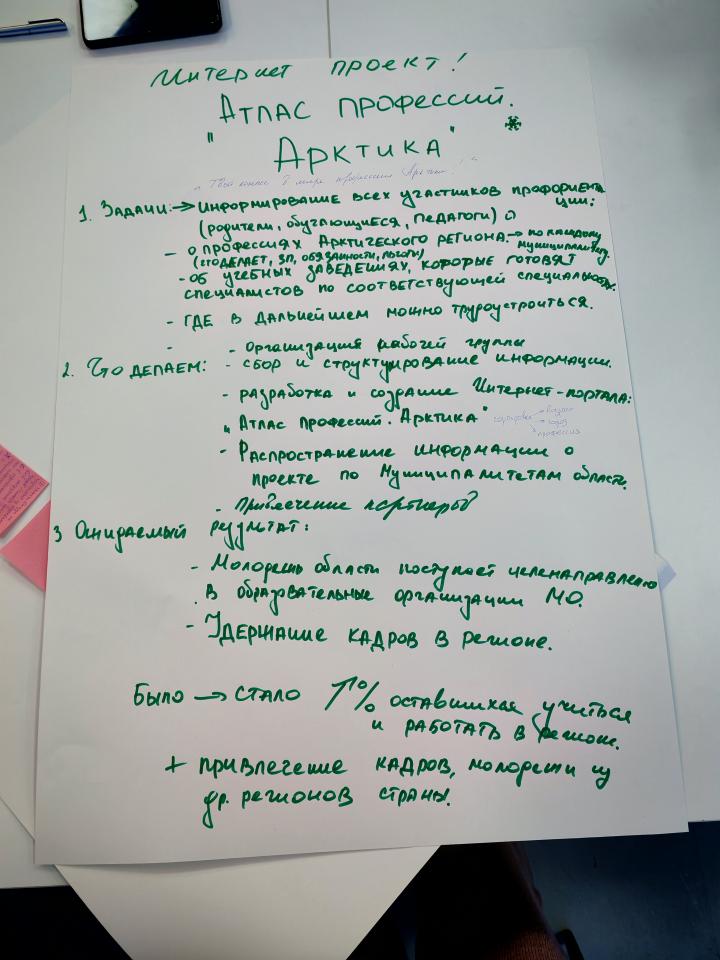 Интернет проект!
Атлас профессий.
"Арктика"
"Твой компас в мире профессий Арктики!"
1. Задачи: → Информирование всех участников профориента
ции:
(родители, обучающиеся, педагоги)
- о профессиях Арктического региона. → по каждому
муниципалитету.
(что делает, ЗП, обязанности, льготы)
- об учебных заведениях, которые готовят
специалистов по соответствующей специальности.
- где в дальнейшем можно трудоустроиться.
- Организация рабочей группы
2. Что делаем: - сбор и структурирование информации.
- разработка и создание Интернет-портала:
"Атлас профессий. Арктика"
сортировка
город
профессия
- Распространение информации о
проекте по Муниципалитетам области.
- Привлечение партнеров
3 Ожидаемый результат:
- Молодежь области поступает целенаправленно
в образовательные организации МО.
- Удержание кадров в регионе.
Было → стало ↑% оставшихся учиться
и работать в регионе.
+ привлечение кадров, молодежи из
др. регионов страны.